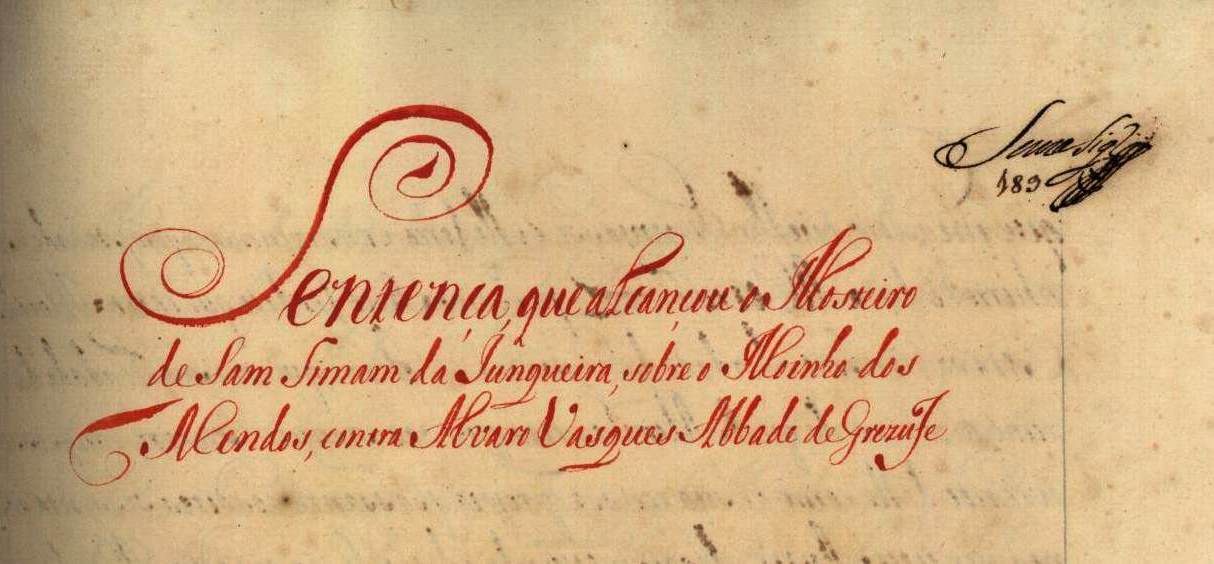 183
Sentença, que alcançou o Mosteiro
de Sam Simam da Junqueira, sobre o Moinho dos
Mendos, contra Alvaro Vasques Abbade de